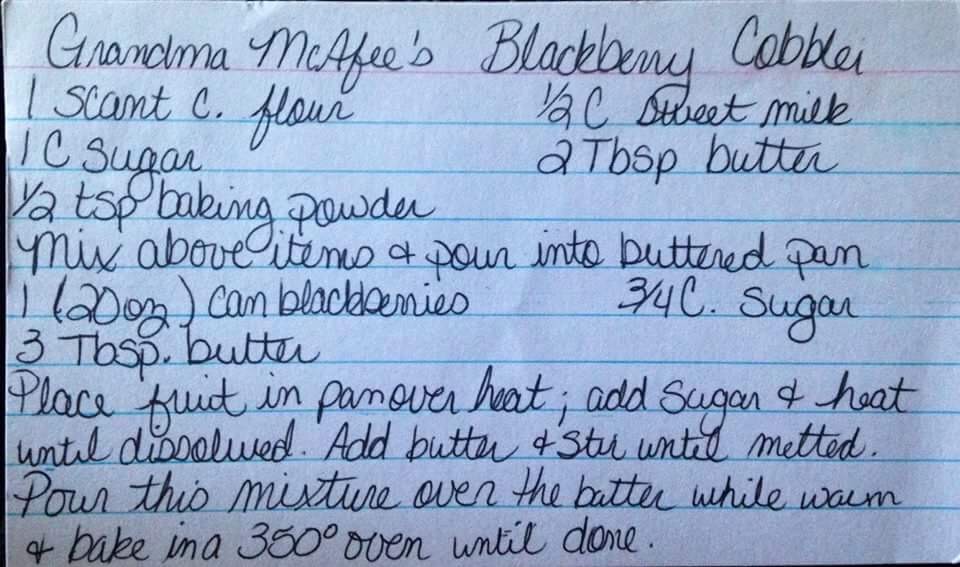 Grandma McAfee's Blackberry Cobbler
1 scant c. flour 1/2 C sweet milk
1 C sugar 2 Tbsp butter
1/2 tsp baking powder
Mix above items & pour into buttered pan
1 (20oz) can blackberries 3/4 C. sugar
3 Tbsp. butter
Place fruit in pan over heat; add sugar & heat
until dissolved. Add butter & stir until melted.
Pour this mixture over the batter while warm
& bake in a 350° oven until done.